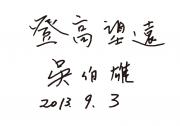 登高望遠
吳伯雄
2013 9. 3